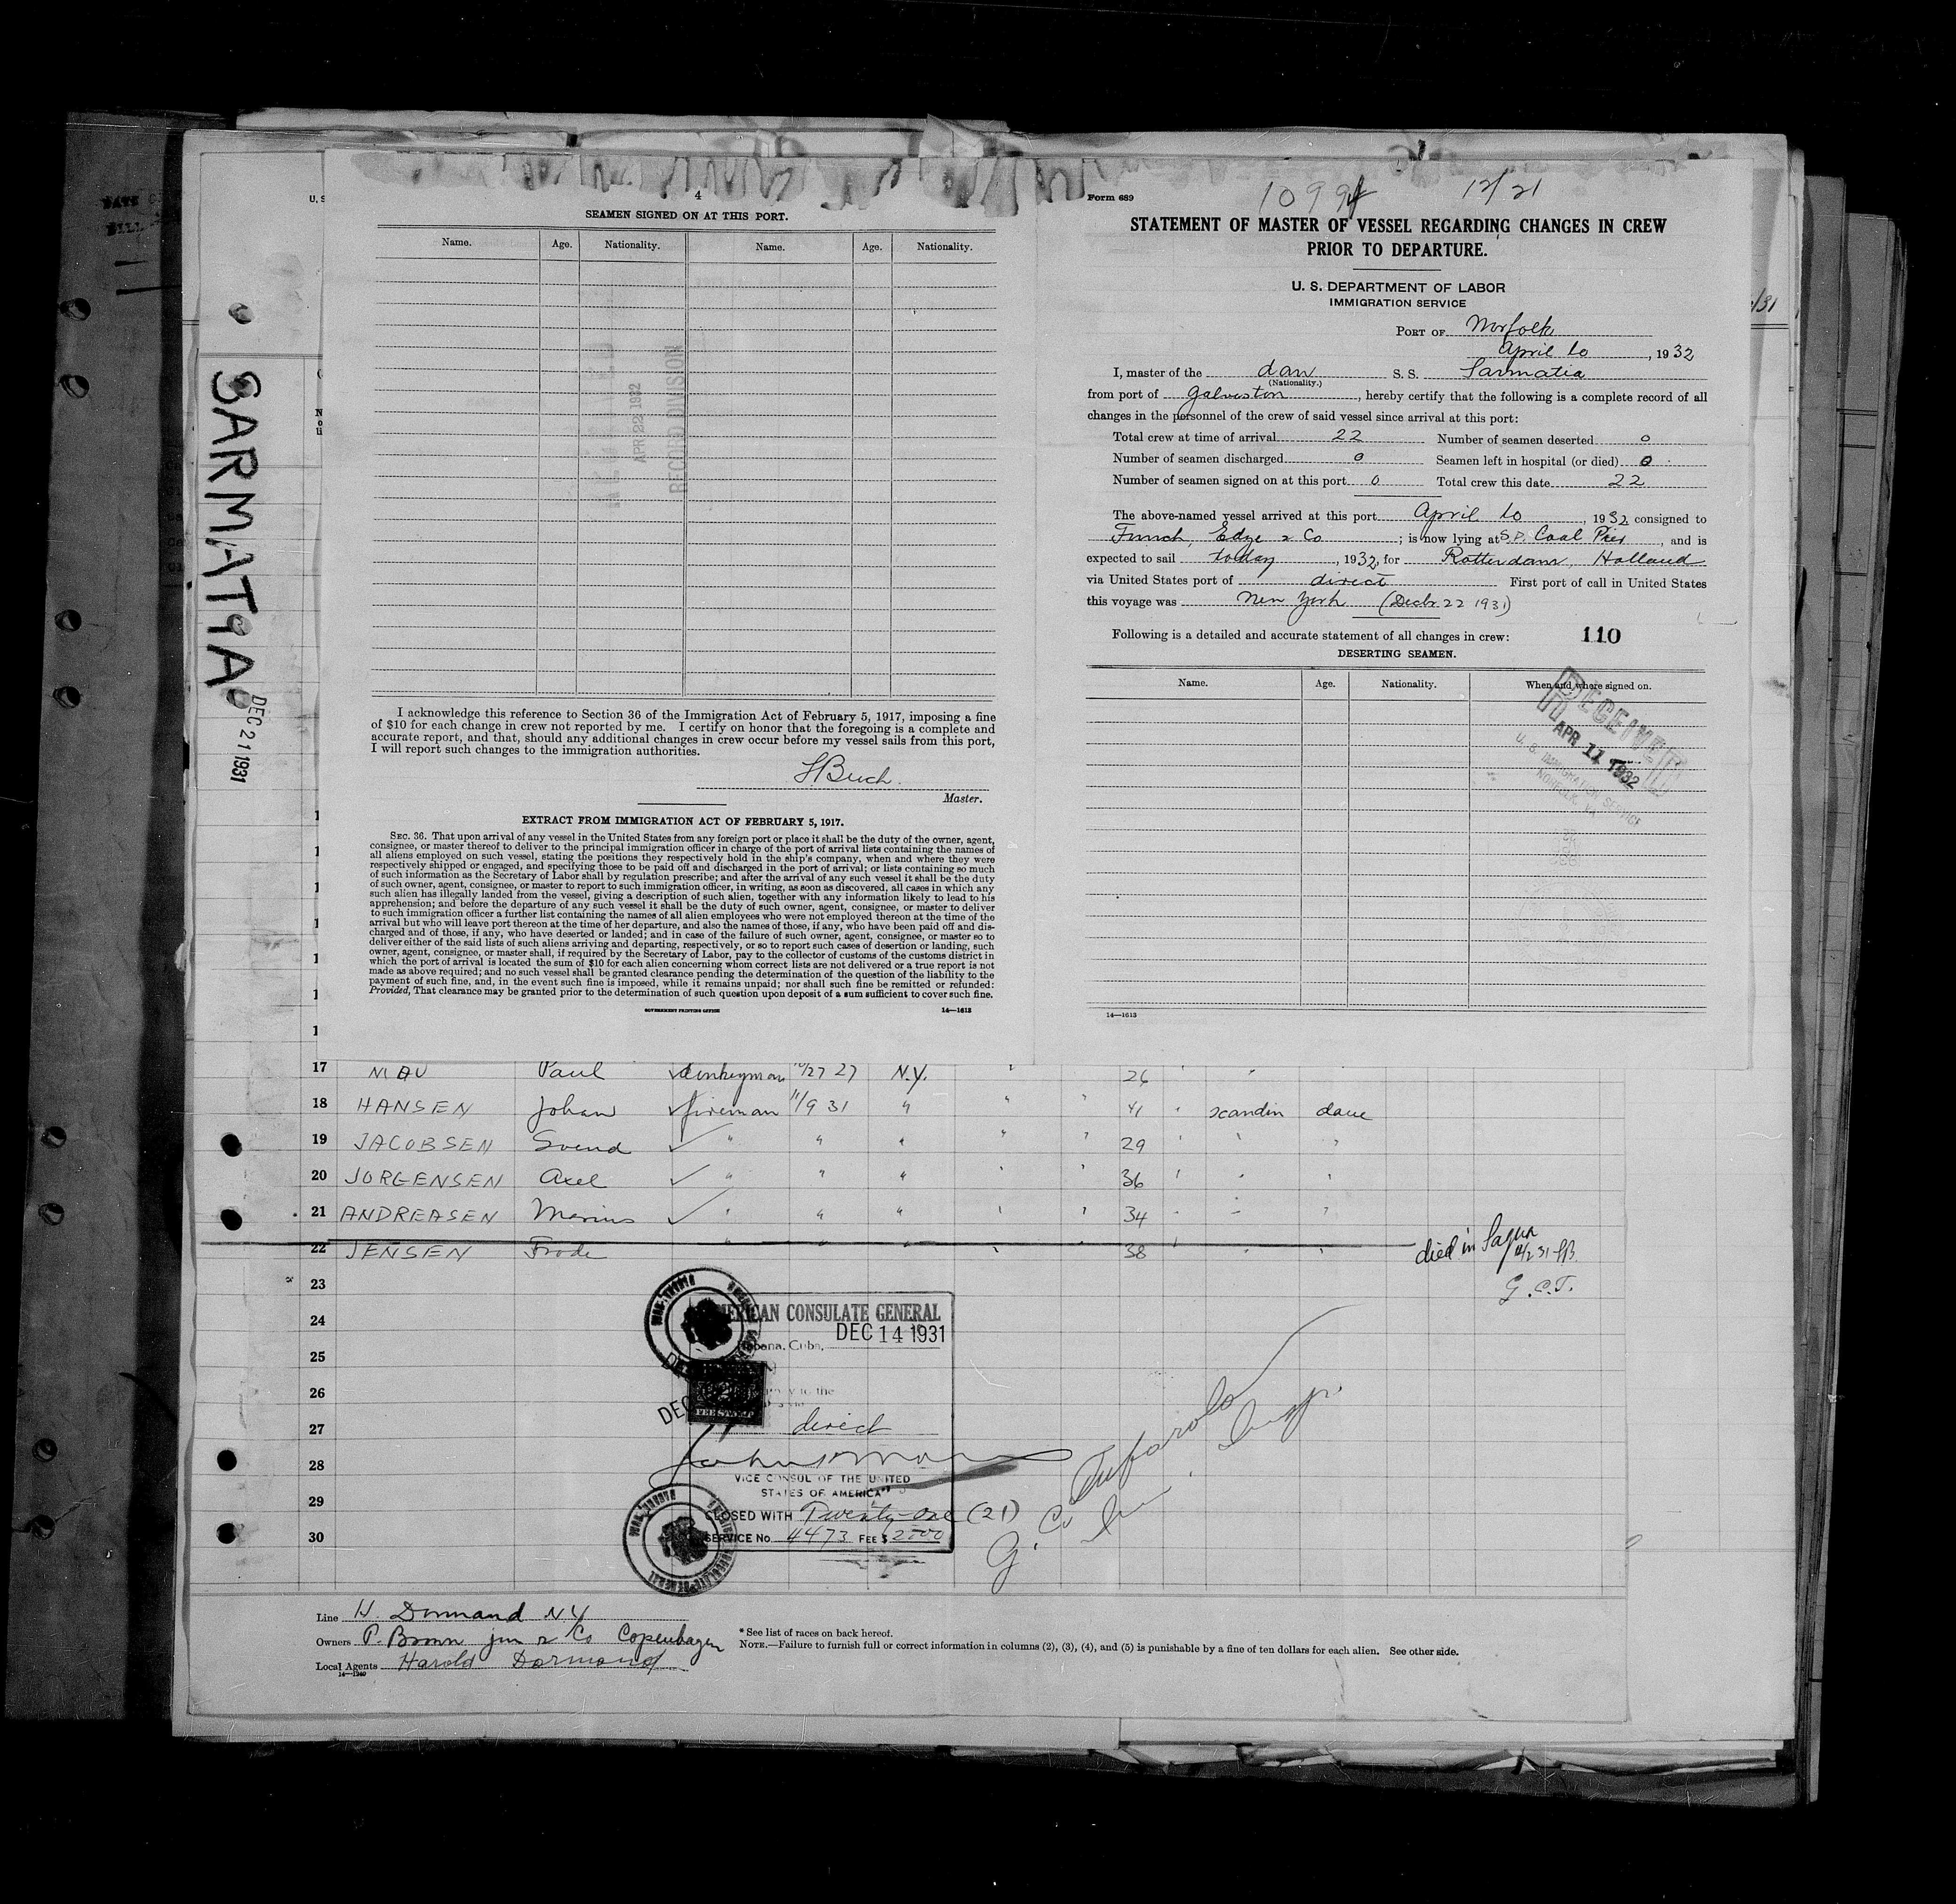 SARMATIA
DEC 21 1931
4
SEAMEN SIGNED ON AT THIS PORT.
Name. Age. Nationality. Name. Age. Nationality.
APR 22 1932
RECORD DIVISION
I acknowledge this reference to Section 36 of the Immigration Act of February 5, 1917, imposing a fine
of $10 for each change in crew not reported by me. I certify on honor that the foregoing is a complete and
accurate report, and that, should any additional changes in crew occur before my vessel sails from this port,
I will report such changes to the immigration authorities.
Master.
EXTRACT FROM IMMIGRATION ACT OF FEBRUARY 5, 1917.
SEC. 36. That upon arrival of any vessel in the United States from any foreign port or place it shall be the duty of the owner, agent,
consignee, or master thereof to deliver to the principal immigration officer in charge of the port of arrival lists containing the names of
all aliens employed on such vessel, stating the positions they respectively hold in the ship's company, when and where they were
respectively shipped or engaged, and specifying those to be paid off and discharged in the port of arrival; or lists containing so much
of such information as the Secretary of Labor shall by regulation prescribe; and after the arrival of any such vessel it shall be the duty
of such owner, agent, consignee, or master to report to such immigration officer, in writing, as soon as discovered, all cases in which any
such alien has illegally landed from the vessel, giving a description of such alien, together with any information likely to lead to his
apprehension; and before the departure of any such vessel it shall be the duty of such owner, agent, consignee, or master to deliver
to such immigration officer a further list containing the names of all alien employees who were not employed thereon at the time of the
arrival but who will leave port thereon at the time of her departure, and also the names of those, if any, who have been paid off and dis-
charged and of those, if any, who have deserted or landed; and in case of the failure of such owner, agent, consignee, or master so to
deliver either of the said lists of such aliens arriving and departing, respectively, or so to report such cases of desertion or landing, such
owner, agent, consignee, or master shall, if required by the Secretary of Labor, pay to the collector of customs of the customs district in
which the port of arrival is located the sum of $10 for each alien concerning whom correct lists are not delivered or a true report is not
made as above required; and no such vessel shall be granted clearance pending the determination of the question of the liability to the
payment of such fine, and, in the event such fine is imposed, while it remains unpaid; nor shall such fine be remitted or refunded:
Provided, That clearance may be granted prior to the determination of such question upon deposit of a sum sufficient to cover such fine.
GOVERNMENT PRINTING OFFICE 14—1613
Form 689
12/21
STATEMENT OF MASTER OF VESSEL REGARDING CHANGES IN CREW
PRIOR TO DEPARTURE.
U. S. DEPARTMENT OF LABOR
IMMIGRATION SERVICE
PORT OF Norfolk
April 10, 1932
I, master of the dan S. S. Sarmatia
(Nationality.)
from port of Galveston, hereby certify that the following is a complete record of all
changes in the personnel of the crew of said vessel since arrival at this port:
Total crew at time of arrival 22 Number of seamen deserted 0
Number of seamen discharged 0 Seamen left in hospital (or died) 0
Number of seamen signed on at this port 0 Total crew this date 22
The above-named vessel arrived at this port April 10, 1932 consigned to
Funch, Edye & Co; is now lying at S.P. Coal Pier, and is
expected to sail today, 1932, for Rotterdam, Holland
via United States port of direct First port of call in United States
this voyage was New York (Decbr 22 1931)
Following is a detailed and accurate statement of all changes in crew: 110
DESERTING SEAMEN.
Name. Age. Nationality. When and where signed on.
RECEIVED
APR 11 1932
U. S. IMMIGRATION SERVICE
NORFOLK, VA
14—1613
17 Paul Donkeyman 10/27 27 N.Y. 26
18 HANSEN Johan fireman 11/9 31 " " " 41 " scandin dane
19 JACOBSEN Svend " " " " " 29 " " "
20 JORGENSEN Axel " " " " " 36 " " "
21 ANDREASEN Marius " " " " " 34 " " "
22 JENSEN Frode " " " " " 38 " " " died in Sagua
G.C.T.
23
24
25
26
27
28
29
30
AMERICAN CONSULATE GENERAL
DEC 14 1931
Habana, Cuba,
direct
VICE CONSUL OF THE UNITED
STATES OF AMERICA
CLOSED WITH Twenty-one (21)
SERVICE No. 4473 FEE $ 2.00
G. C. Tufarolo
Line H. Dormand N.Y
Owners P. Brown jun & Co Copenhagen
Local Agents Harold Dormand
14—1240
* See list of races on back hereof.
NOTE.—Failure to furnish full or correct information in columns (2), (3), (4), and (5) is punishable by a fine of ten dollars for each alien. See other side.